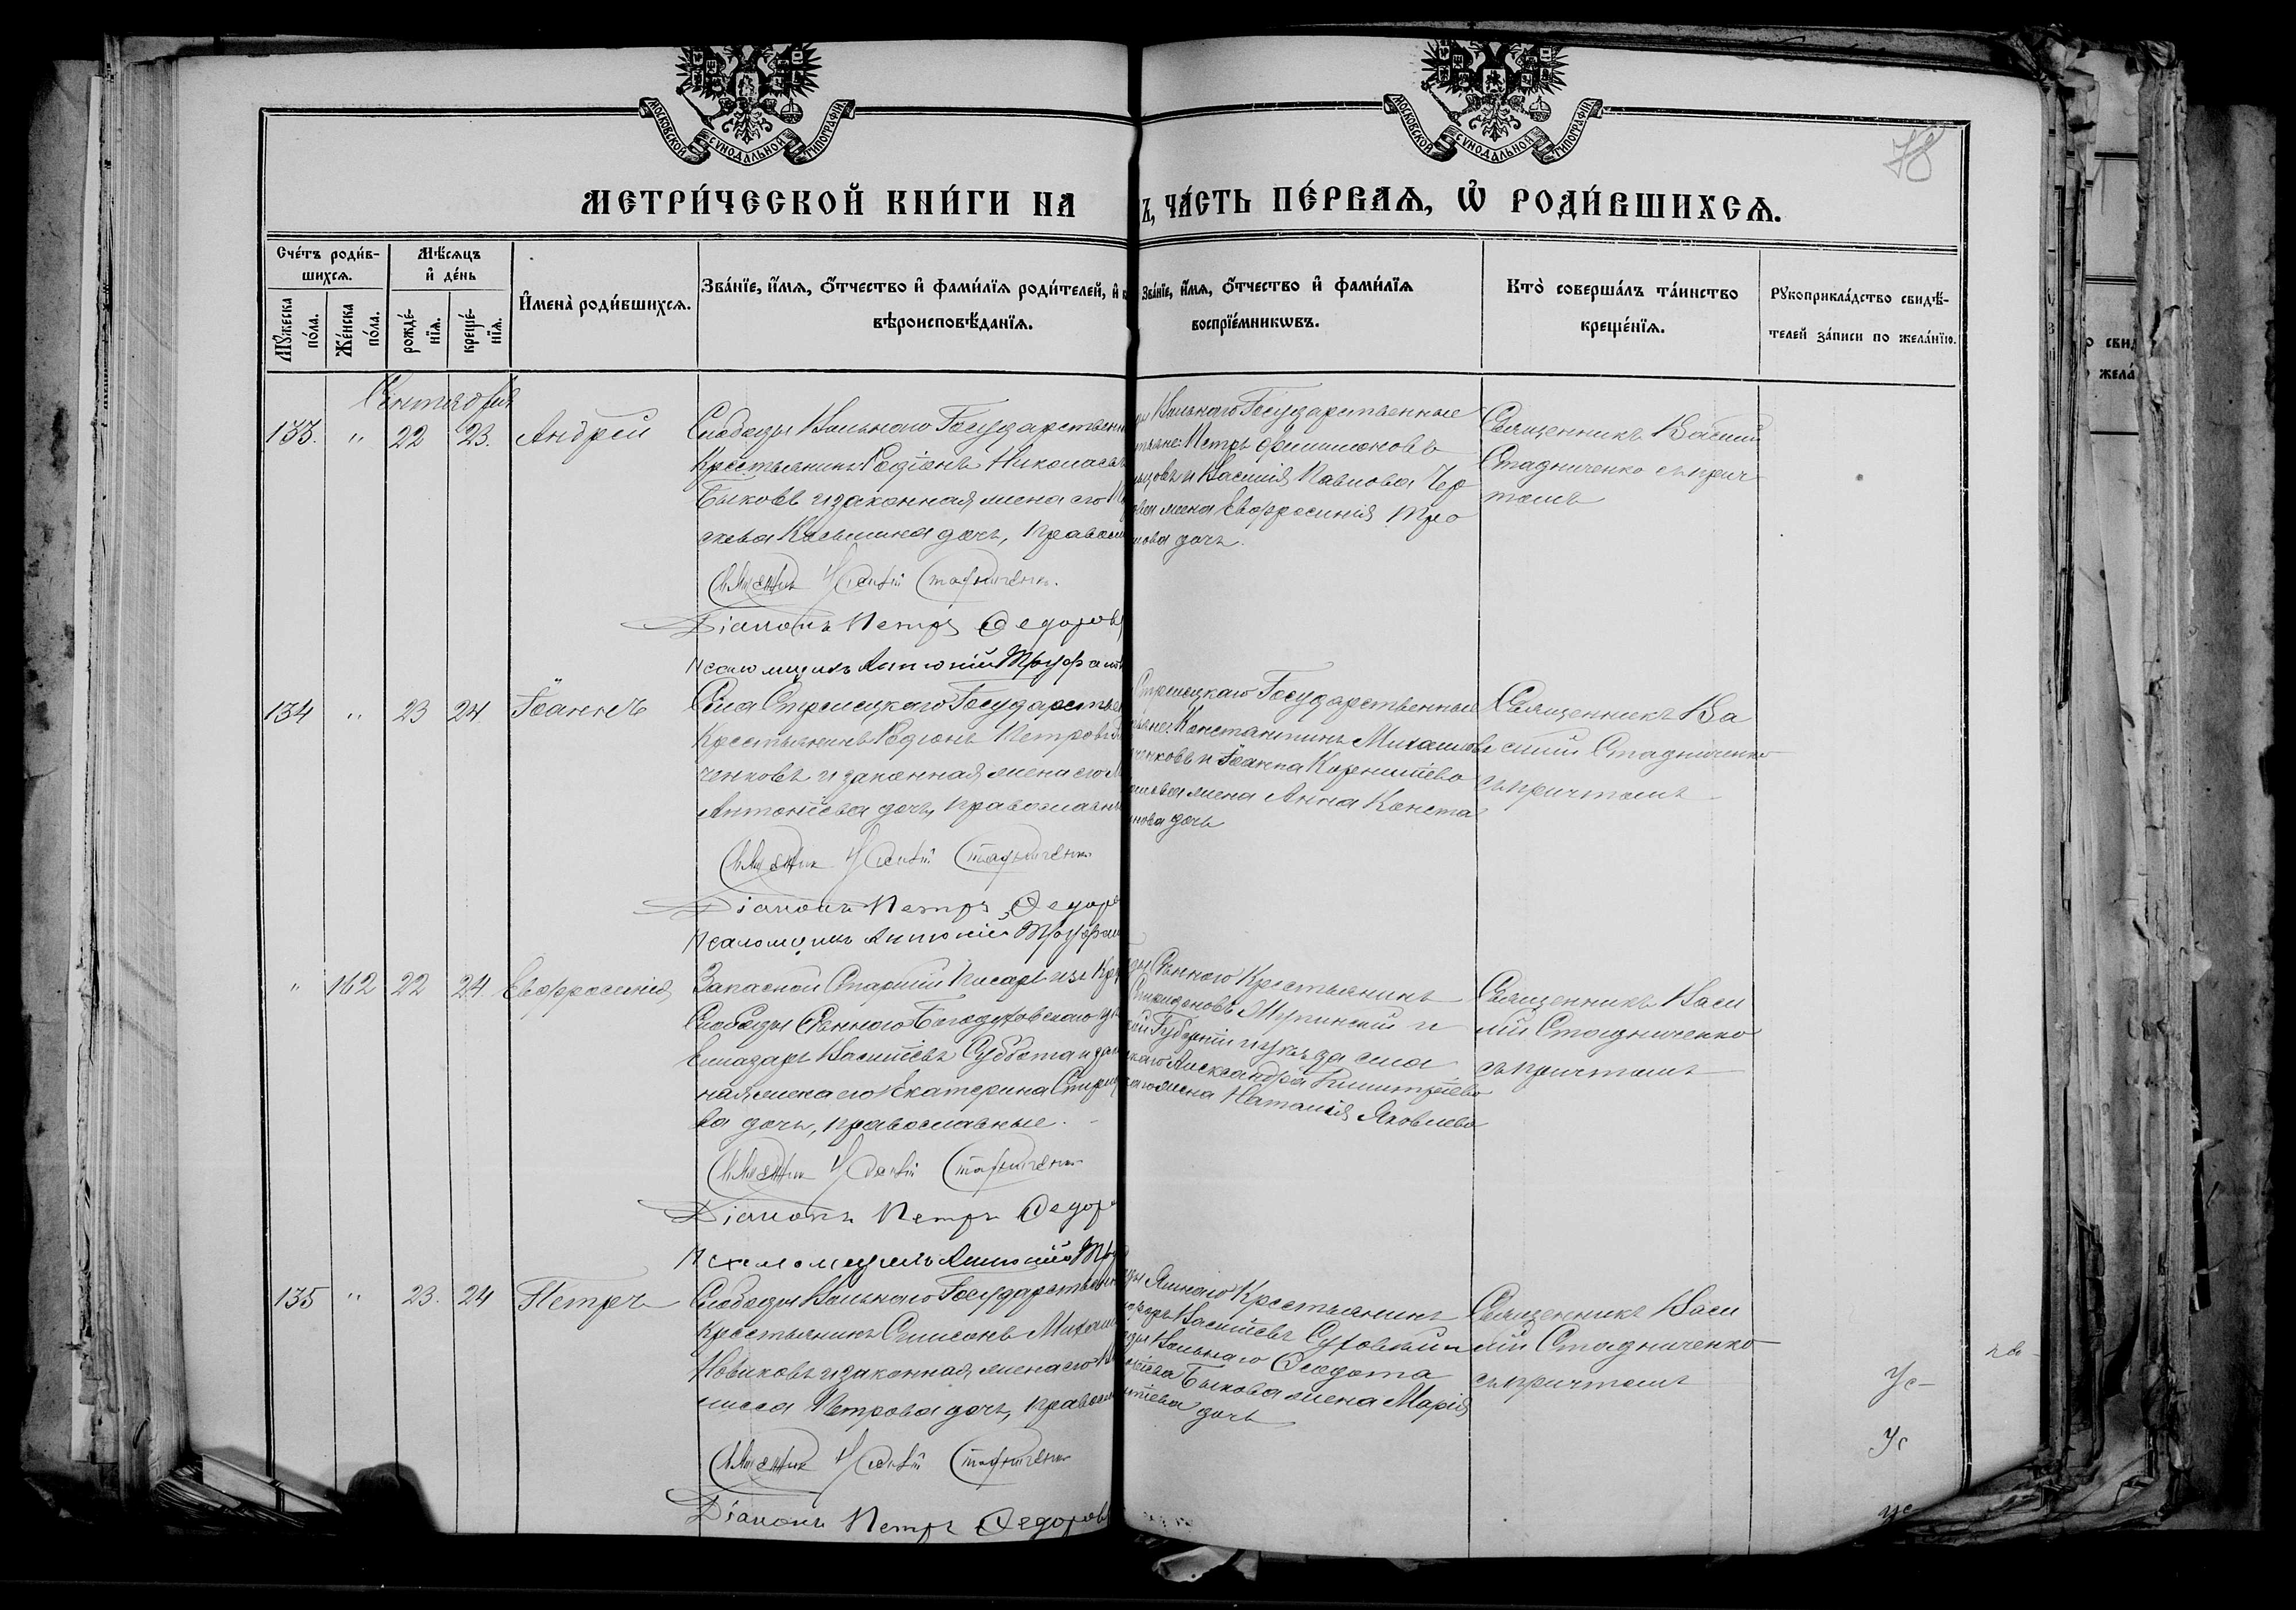 МОСКОВСКОЙ СѴНОДАЛЬНОЙ ТИПОГРАФІИ
МОСКОВСКОЙ СѴНОДАЛЬНОЙ ТИПОГРАФІИ
78
МЕТРИ́ЧЕСКОЙ КНИ́ГИ НА
Ъ, ЧА́СТЬ ПЕ́РВАѦ, Ѡ҆ РОДИ́ВШИХСѦ.
Сче́тъ роди́в-
шихсѧ.
Мѣ́сѧцъ
и҆ де́нь
Мꙋ́жеска
по́ла.
Же́нска
по́ла.
рожде́-
нїѧ.
креще́-
нїѧ.
И҆мена̀ роди́вшихсѧ.
Зва́нїе, и҆́мѧ, ѻ҆́тчество и҆ фами́лїѧ роди́телей, и҆ к
вѣроисповѣ́данїѧ.
Зва́нїе, и҆́мѧ, ѻ҆́тчество и҆ фами́лїѧ
воспрїе́мникѡвъ.
Кто̀ соверша́лъ та́инство
креще́нїѧ.
Рꙋкоприкла́дство свидѣ́-
телей за́писи по жела́нїю.
Сентябрь
133. " 22 23. Андрей
Слободы Вольнаго Государствен
Крестьянинъ Родіонъ Николаевъ
Быковъ и законная жена его
Козьмина дочь, правосл
Священник Василій Стадниченко
Діаконъ Петръ Федоровъ
Псаломщикъ Антоній Труфанов
Вольнаго Государственные
тьяне: Петръ Филимоновъ
и Василія Павлова Чер
жена Евфросинія Тро
мова дочь.
Священникъ Василій
Стадниченко съ прич
томъ
134 " 23 24. Іоаннъ
Села Стрелецкаго Государстве
Крестьянинъ Родіонъ Петровъ
ченковъ и законная жена его М
Антоніева дочь, православны
Священник Василій Стадниченко
Діаконъ Петръ Федоро
Псаломщикъ Антоній Труфан
Стрелецкаго Государственные
Константинъ Михаиловъ
ченковъ и Іоанна Корниліево
жена Анна Конста
нова дочь
Священникъ Ва
силій Стадниченко
съ причтомъ
" 162 22 24. Евфросинія
Запасной Старшій Писарь изъ Кр
Слободы Сеннаго Богодуховскаго у
Елиазаръ Василіевъ Суббота и зак
ная жена его Екатерина Спири
ва дочь, православные.
Священник Василій Стадниченко
Діаконъ Петръ Федоро
Псаломщикъ Антоній Тру
Сеннаго Крестьянинъ
Спиридоновъ и
Губерніи и уѣзда села
Александра Димитріево
жена Наталія Яковлева
Священникъ Васи
лій Стадниченко
съ причтомъ
135 " 23. 24 Петръ
Слободы Вольнаго Государствен
Крестьянинъ Симеонъ Михаи
Новиковъ и законная жена его
Петрова дочь, правосл
Священник Василій Стадниченко
Діаконъ Петръ Федоровъ
Ямнаго Крестьянинъ
Василіевъ и
Вольнаго Феодота
Быкова жена Марія
дочь
Священникъ Васи
лій Стадниченко
съ причтомъ
Ус
Ус
Ус